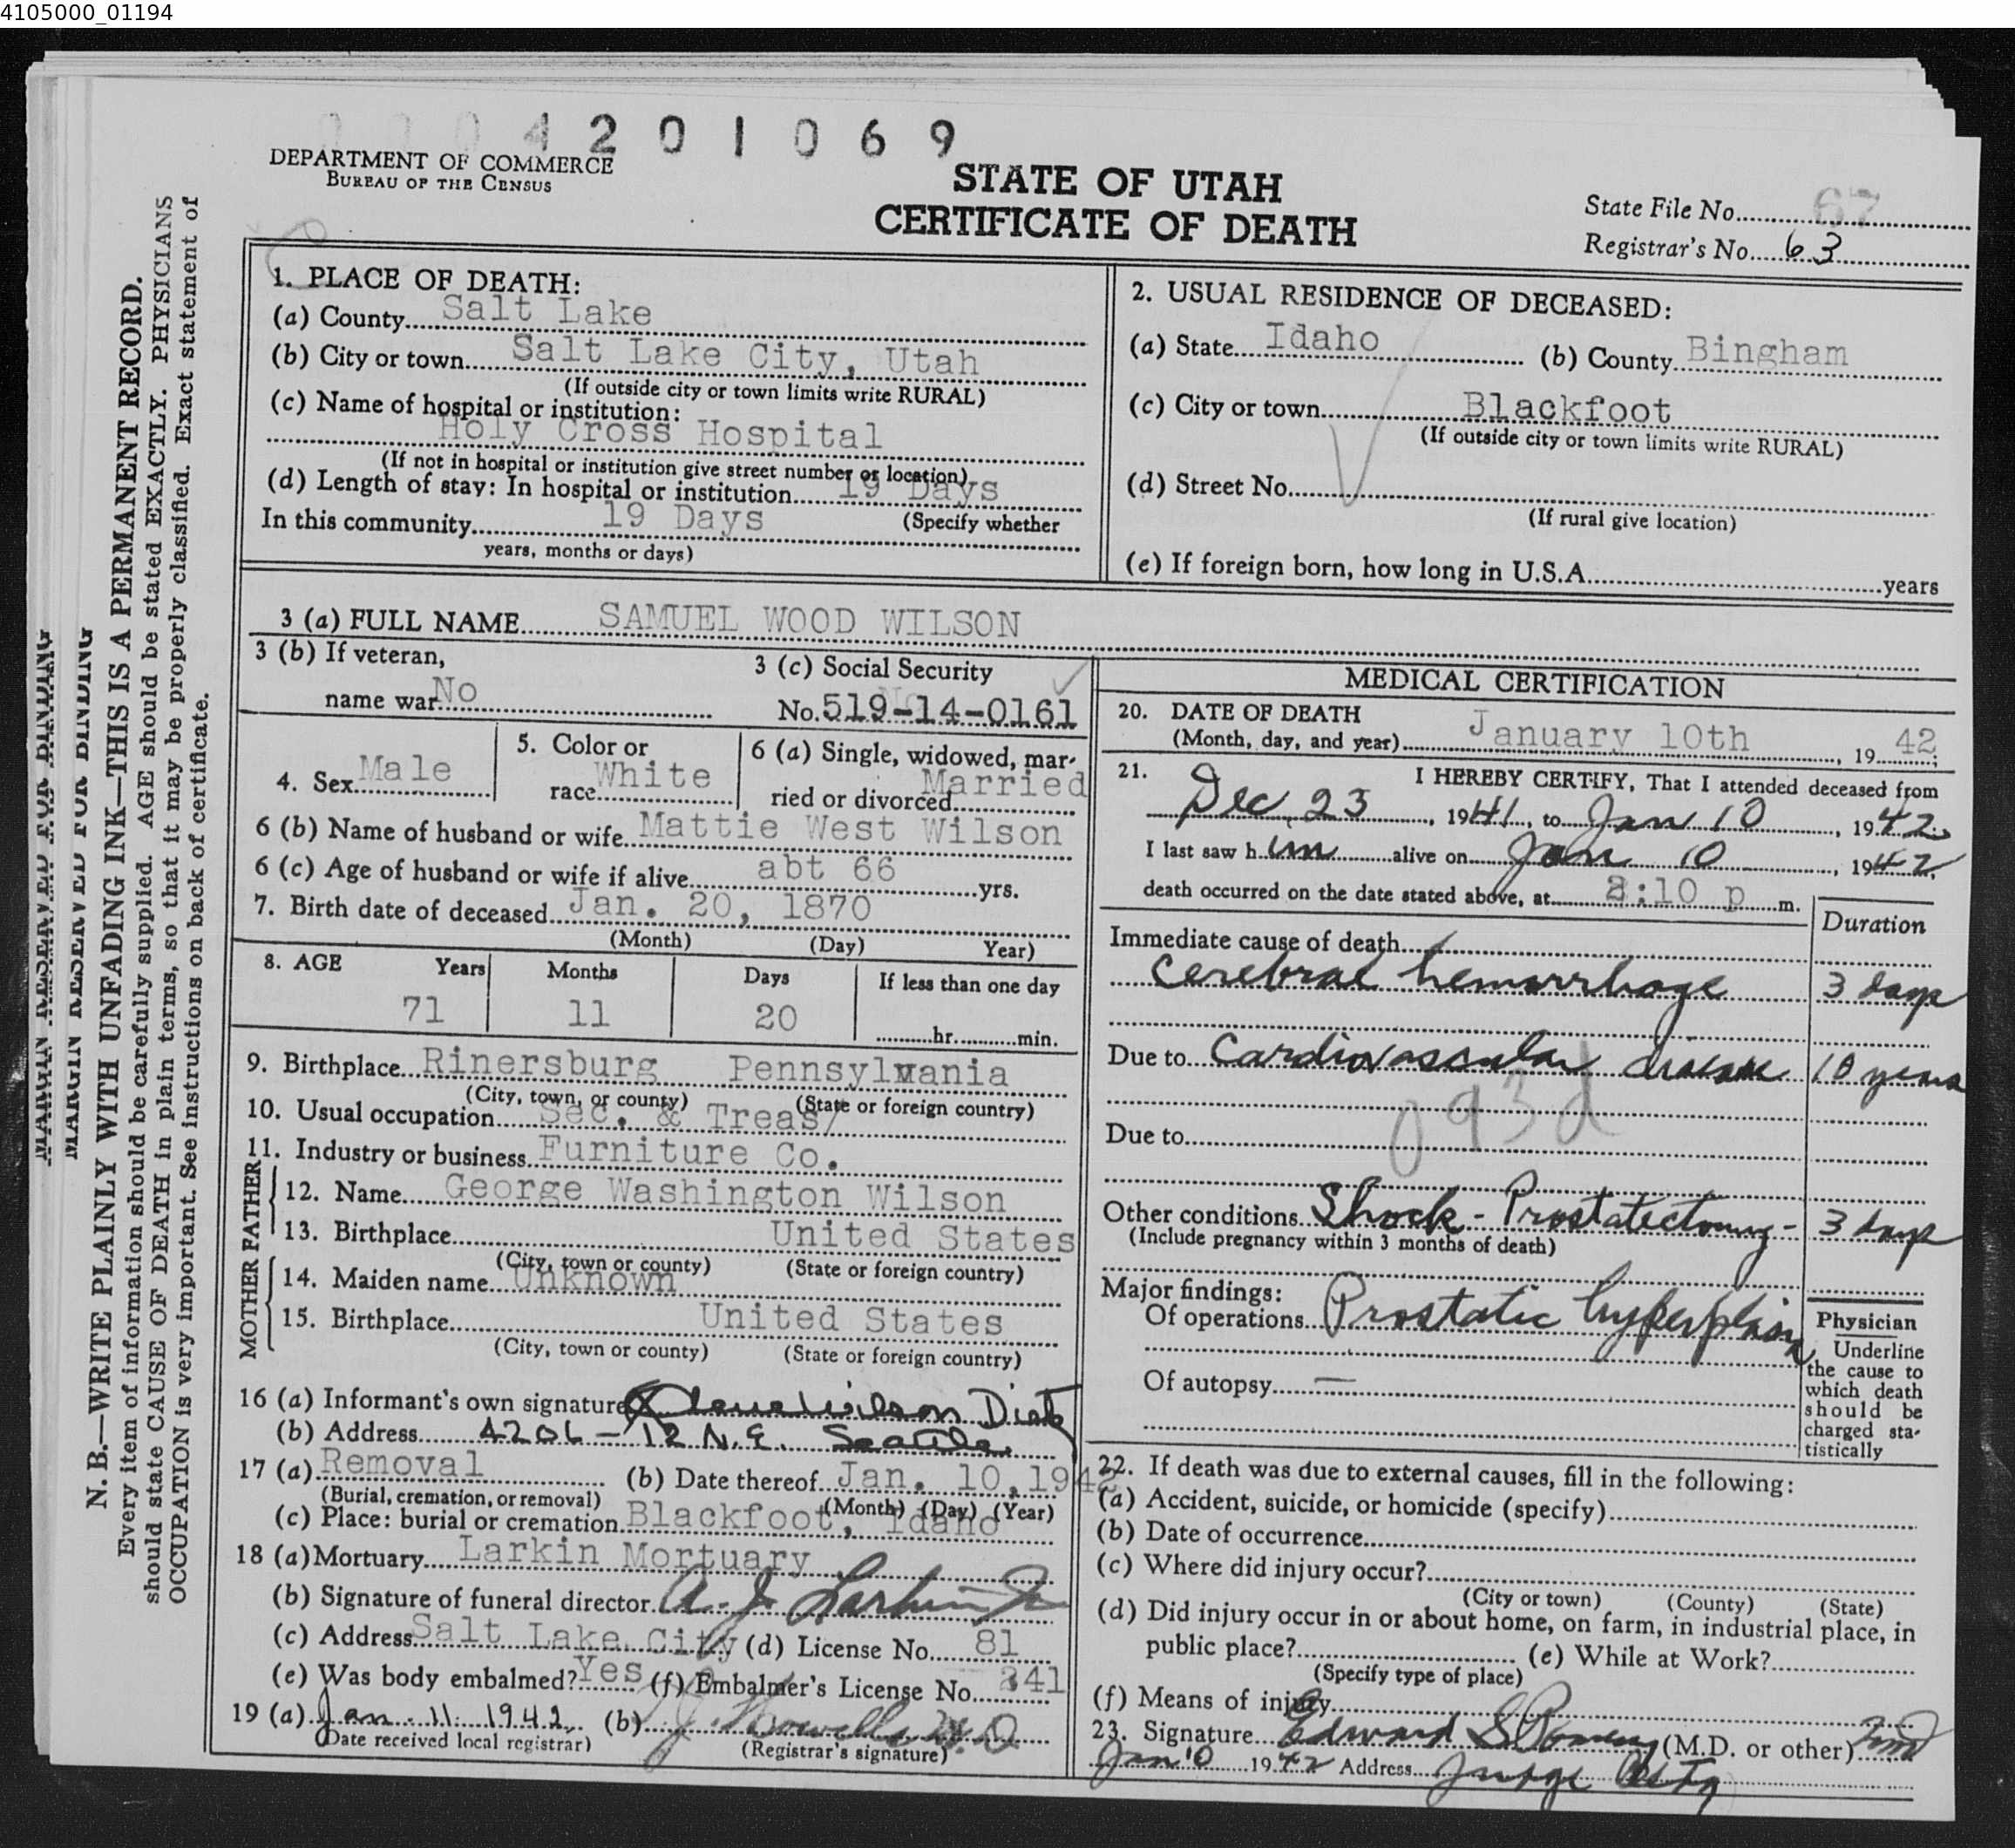 4105000_01194
4201069
DEPARTMENT OF COMMERCE
BUREAU OF THE CENSUS
STATE OF UTAH
CERTIFICATE OF DEATH
State File No. 67
Registrar's No. 63
MARGIN RESERVED FOR BINDING
MARGIN RESERVED FOR BINDING
N. B.—WRITE PLAINLY WITH UNFADING INK—THIS IS A PERMANENT RECORD.
Every item of information should be carefully supplied. AGE should be stated EXACTLY. PHYSICIANS
should state CAUSE OF DEATH in plain terms, so that it may be properly classified. Exact statement of
OCCUPATION is very important. See instructions on back of certificate.
1. PLACE OF DEATH:
(a) County Salt Lake
(b) City or town Salt Lake City, Utah
(If outside city or town limits write RURAL)
(c) Name of hospital or institution:
Holy Cross Hospital
(If not in hospital or institution give street number or location)
(d) Length of stay: In hospital or institution 19 Days
In this community 19 Days (Specify whether
years, months or days)
2. USUAL RESIDENCE OF DECEASED:
(a) State Idaho (b) County Bingham
(c) City or town Blackfoot
(If outside city or town limits write RURAL)
(d) Street No.
(If rural give location)
(e) If foreign born, how long in U.S.A. years
3 (a) FULL NAME SAMUEL WOOD WILSON
3 (b) If veteran,
name war No
3 (c) Social Security
No. 519-14-0161
4. Sex Male
5. Color or
race White
6 (a) Single, widowed, mar-
ried or divorced Married
6 (b) Name of husband or wife Mattie West Wilson
6 (c) Age of husband or wife if alive abt 66 yrs.
7. Birth date of deceased Jan. 20, 1870
(Month) (Day) Year)
8. AGE Years Months Days If less than one day
71 11 20 hr. min.
9. Birthplace Rinersburg Pennsylvania
(City, town, or county) (State or foreign country)
10. Usual occupation Sec. & Treas/
11. Industry or business Furniture Co.
FATHER
12. Name George Washington Wilson
13. Birthplace United States
(City, town or county) (State or foreign country)
MOTHER
14. Maiden name Unknown
15. Birthplace United States
(City, town or county) (State or foreign country)
16 (a) Informant's own signature Wilson
(b) Address 4206 - 12 N.E. Seattle
17 (a) Removal (b) Date thereof Jan. 10, 1942
(Burial, cremation, or removal) (Month) (Day) (Year)
(c) Place: burial or cremation Blackfoot, Idaho
18 (a) Mortuary Larkin Mortuary
(b) Signature of funeral director A. J. Larkin Jr
(c) Address Salt Lake City (d) License No. 81
(e) Was body embalmed? Yes (f) Embalmer's License No. 341
19 (a) Jan. 11. 1942 (b) M.D
(Date received local registrar) (Registrar's signature)
MEDICAL CERTIFICATION
20. DATE OF DEATH
(Month, day, and year) January 10th, 19 42;
21. I HEREBY CERTIFY, That I attended deceased from
Dec 23, 1941, to Jan 10, 1942
I last saw h im alive on Jan 10, 1942,
death occurred on the date stated above, at :10 p m.
Duration
Immediate cause of death
Cerebral hemorrhage 3 days
Due to Cardiovascular disease 10 years
093d
Due to
Other conditions Shock - Prostatectomy - 3 days
(Include pregnancy within 3 months of death)
Major findings:
Of operations Prostatic hyperplasia
Of autopsy —
Physician
Underline
the cause to
which death
should be
charged sta-
tistically
22. If death was due to external causes, fill in the following:
(a) Accident, suicide, or homicide (specify)
(b) Date of occurrence
(c) Where did injury occur?
(City or town) (County) (State)
(d) Did injury occur in or about home, on farm, in industrial place, in
public place? (e) While at Work?
(Specify type of place)
(f) Means of injury
23. Signature Edward (M.D. or other)
Jan 10 1942 Address Judge Bldg